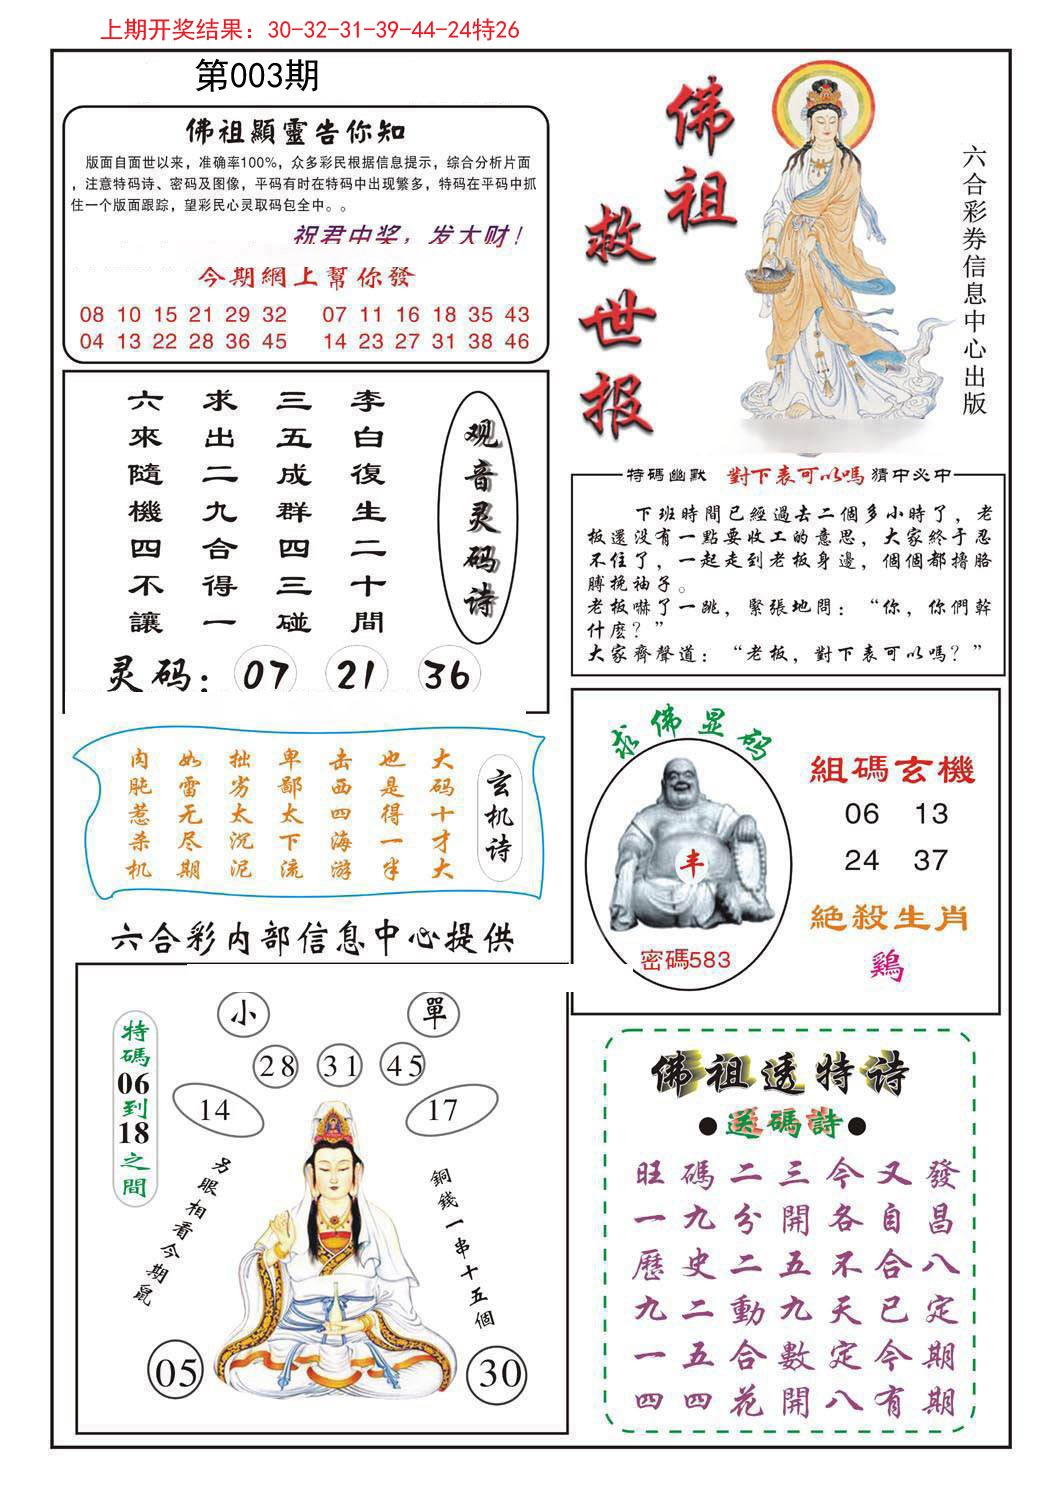 上期开奖结果：30-32-31-39-44-24特26
第003期
佛祖顯靈告你知
版面自面世以来，准确率100%，众多彩民根据信息提示，综合分析片面
，注意特码诗、密码及图像，平码有时在特码中出现繁多，特码在平码中抓
住一个版面跟踪，望彩民心灵取码包全中。。
祝君中奖，发大财！
今期網上幫你發
08 10 15 21 29 32 07 11 16 18 35 43
04 13 22 28 36 45 14 23 27 31 38 46
佛祖
救世报
六合彩券信息中心出版
观音灵码诗
李白復生二十間
三五成群四三碰
求出二九合得一
六來隨機四不讓
灵码：07 21 36
特碼幽默 對下表可以嗎 猜中必中
下班時間已經過去二個多小時了，老
板還没有一點要收工的意思，大家終于忍
不住了，一起走到老板身邊，個個都擼胳
膊挽袖子。
老板嚇了一跳，緊張地問：“你，你們幹
什麽？”
大家齊聲道：“老板，對下表可以嗎？”
玄机诗
大码十才大
也是得一半
击西四海游
卑鄙太下流
拙劣太沉泥
如雷无尽期
肉肫惹杀机
求佛显码
丰
密碼583
組碼玄機
06 13
24 37
絕殺生肖
鷄
六合彩内部信息中心提供
特碼06到18之間
小 單
28 31 45
14 17
另眼相看今期鼠
銅錢一串十五個
05 30
佛祖透特诗
●送碼詩●
旺碼二三今又發
一九分開各自昌
歷史二五不合八
九二動九天已定
一五合數定今期
四四花開八有期